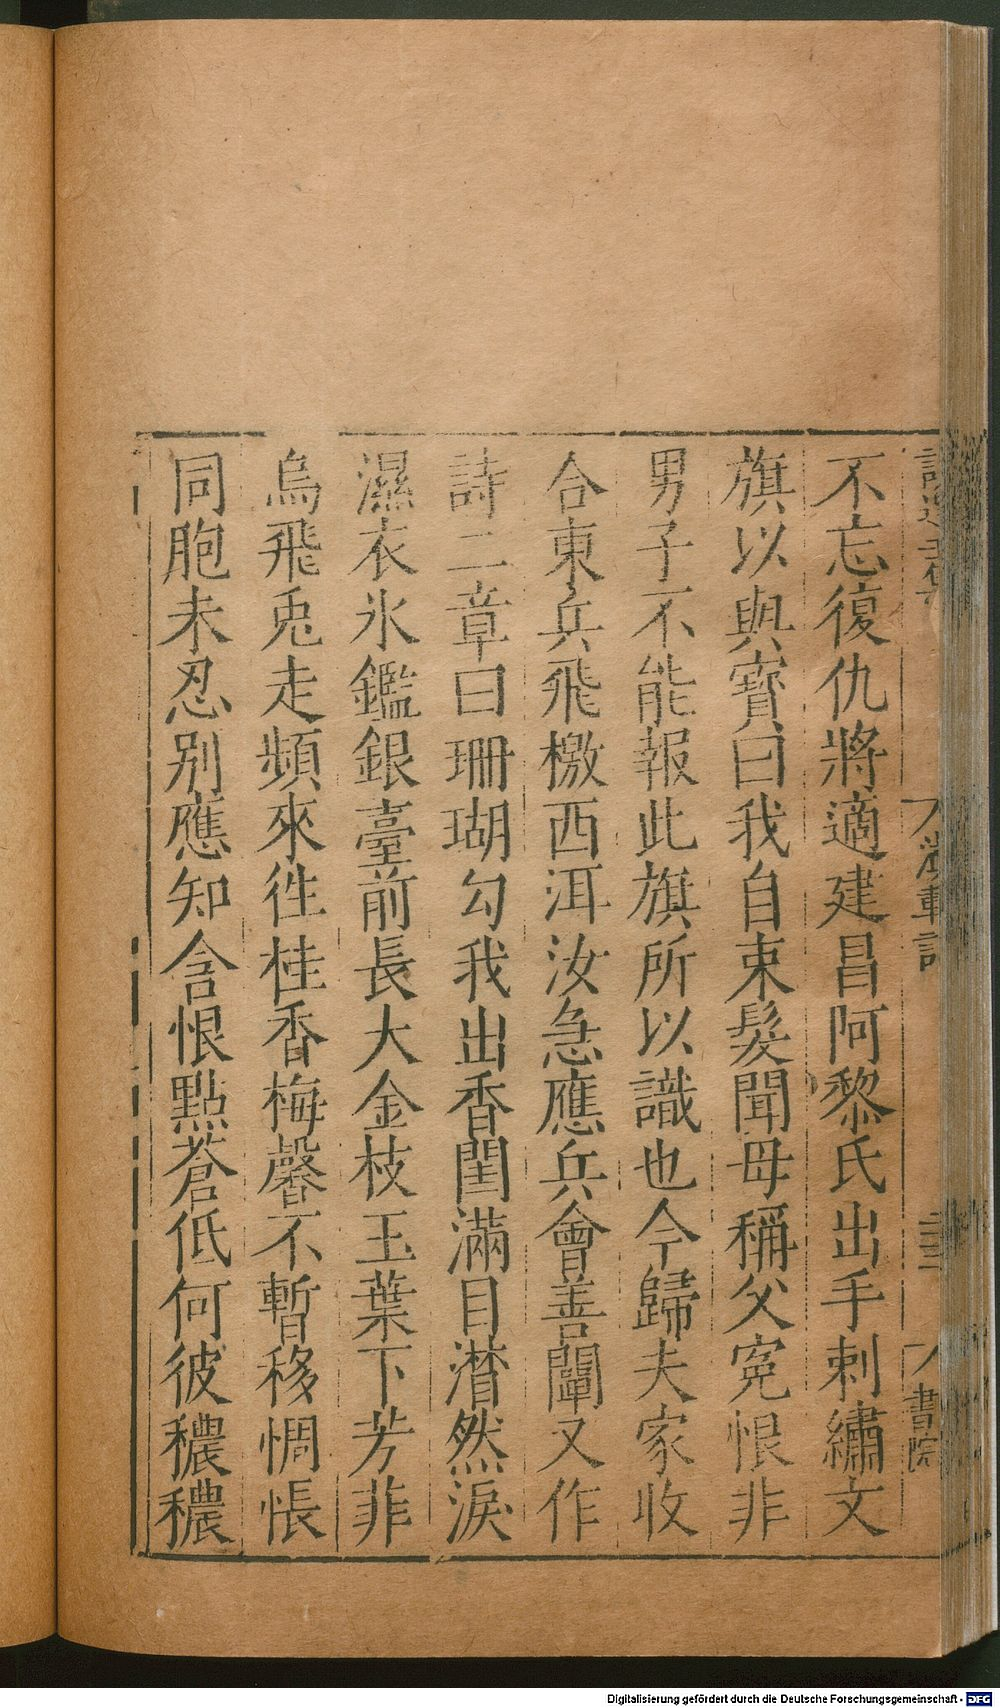 不忘復仇將適建昌阿黎氏出手刺繡文
旗以與寳曰我自束髮聞母稱父寃恨非
男子不能報此旗所以識也今歸夫家收
合東兵飛檄西洱汝急應兵會善闡又作
詩二章曰珊瑚勾我出香閨滿目潸然淚
濕衣氷鑑銀臺前長大金枝玉葉下芳菲
烏飛兎走頻來徃桂香梅馨不暫移惆悵
同胞未忍别應知含恨點蒼低何彼穠穠
滇載記
書院
Digitalisierung gefördert durch die Deutsche Forschungsgemeinschaft - DFG